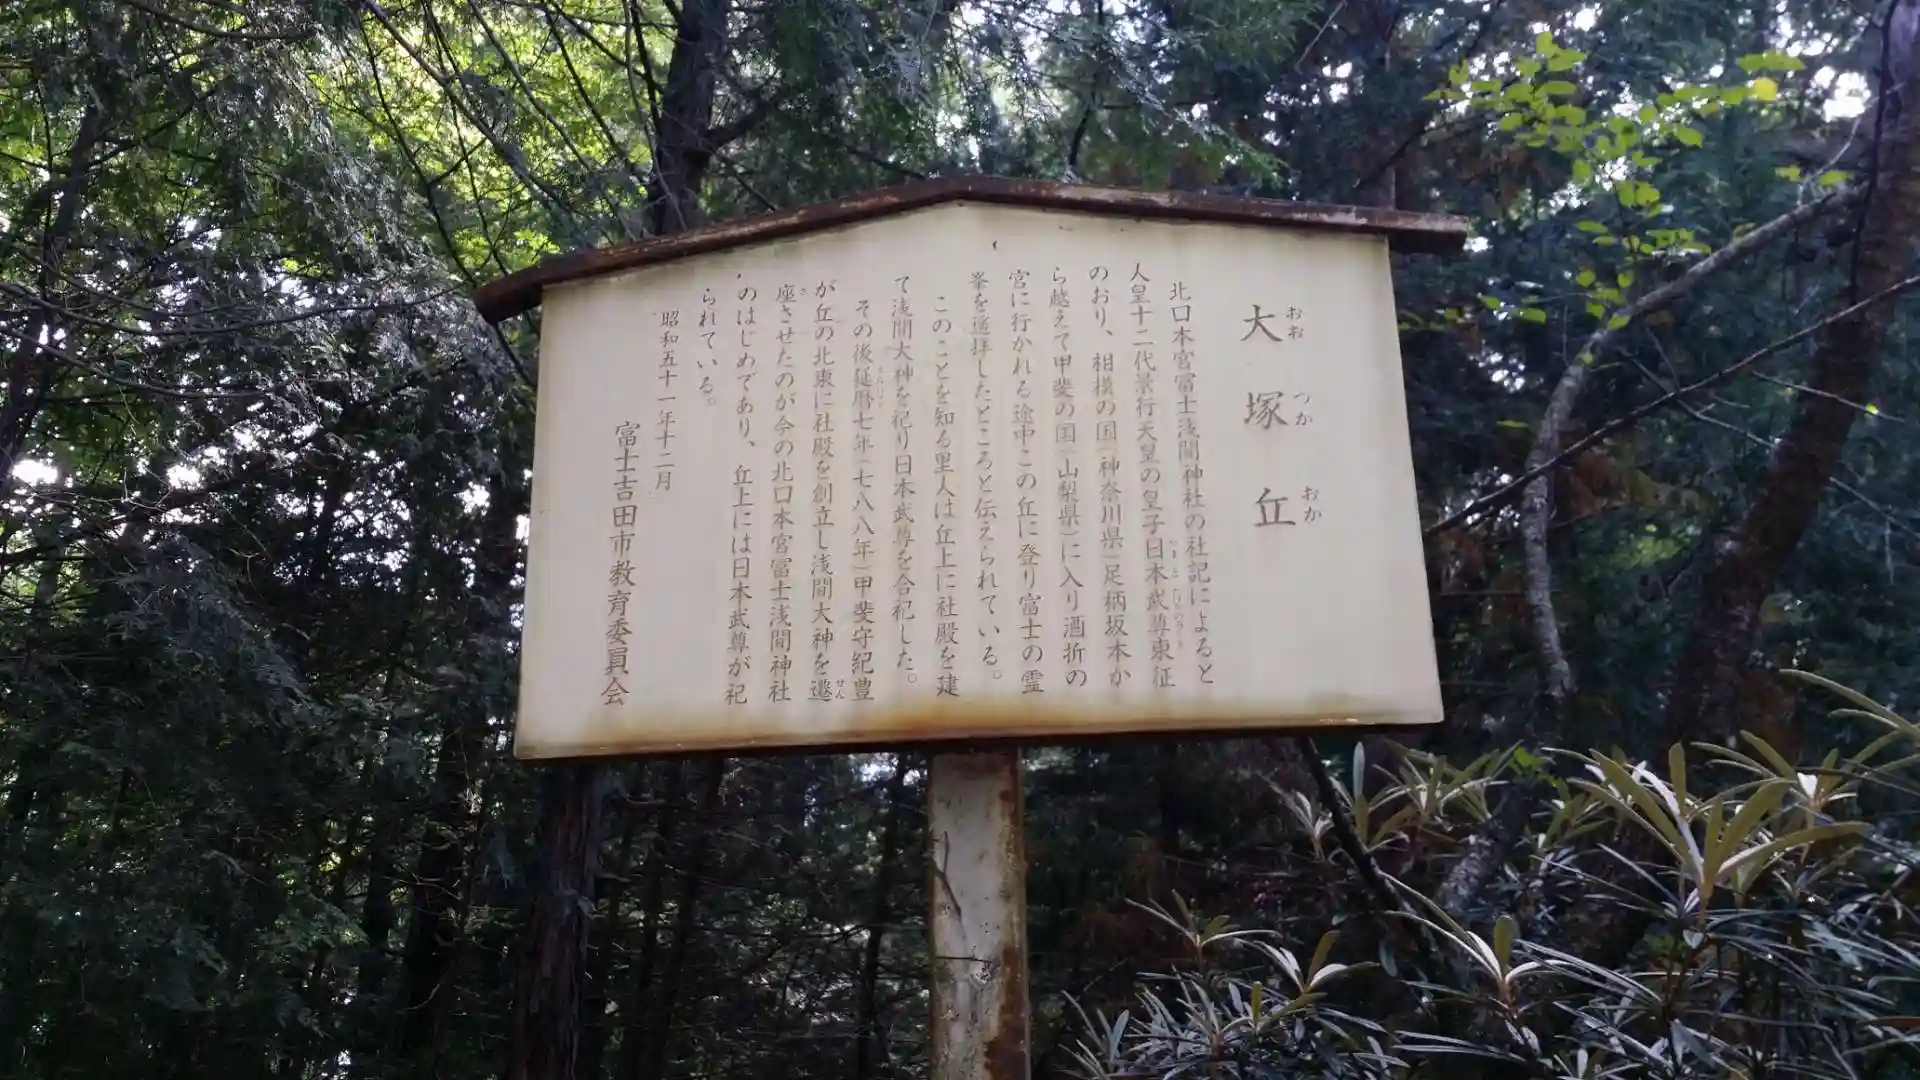 大塚丘
おおつかおか
北口本宮冨士浅間神社の社記によると
人皇十二代景行天皇の皇子日本武尊東征
のおり、相模の国(神奈川県)足柄坂本か
ら越えて甲斐の国(山梨県)に入り酒折の
宮に行かれる途中この丘に登り富士の霊
峯を遥拝したところと伝えられている。
このことを知る里人は丘上に社殿を建
て浅間大神を祀り日本武尊を合祀した。
その後延暦七年(七八八年)甲斐守紀豊
が丘の北東に社殿を創立し浅間大神を遷
せん
座させたのが今の北口本宮冨士浅間神社
ざ
のはじめであり、丘上には日本武尊が祀
られている。
昭和五十一年十二月
富士吉田市教育委員会